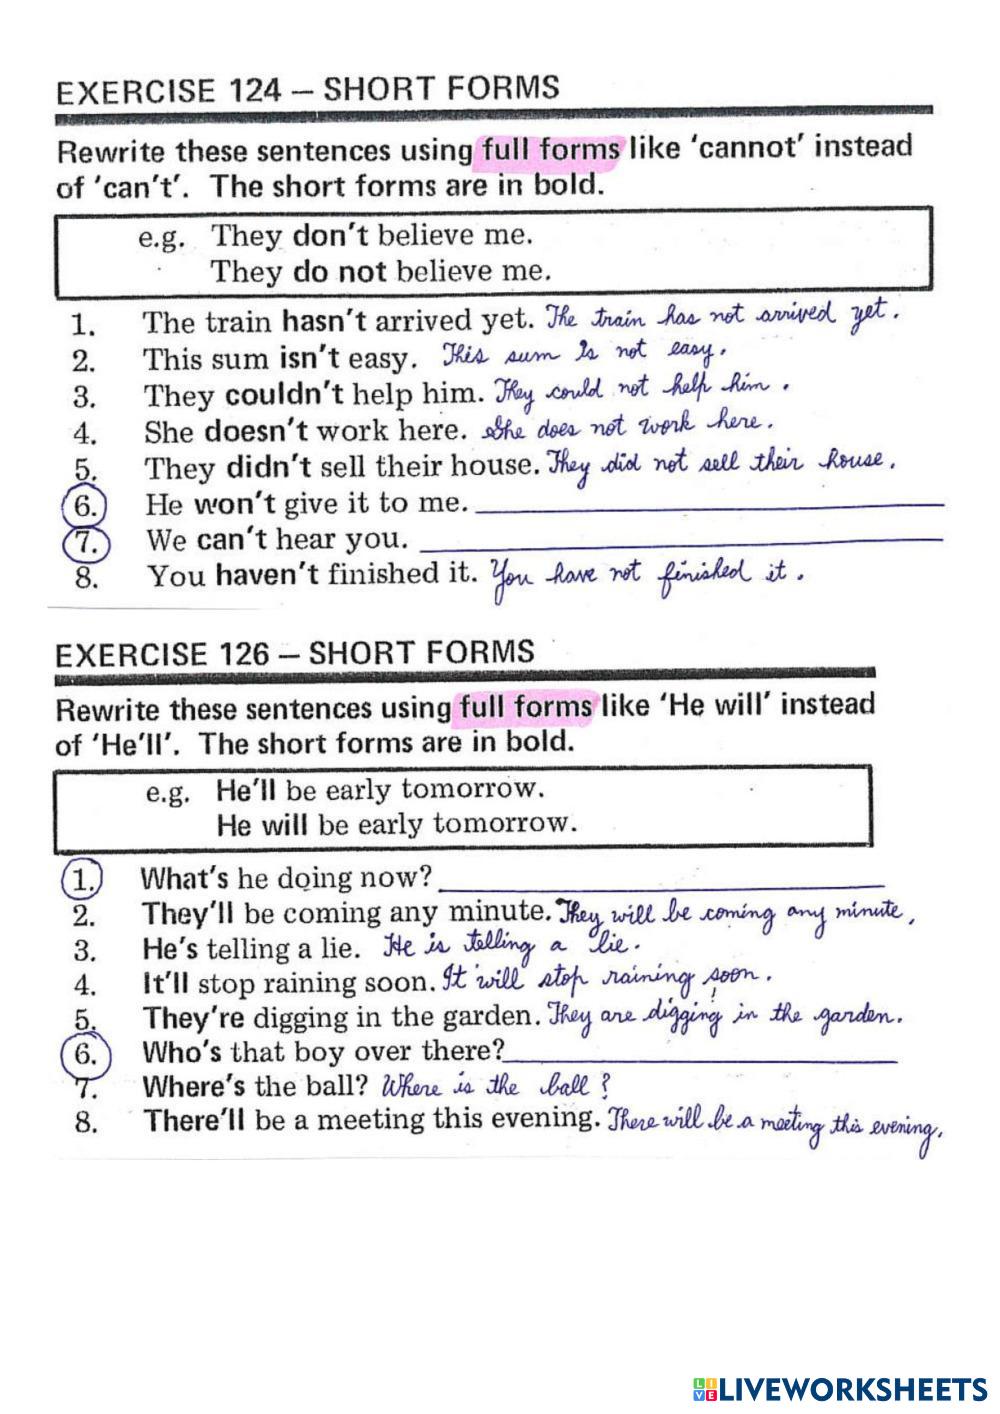 EXERCISE 124 – SHORT FORMS
Rewrite these sentences using full forms like ‘cannot’ instead
of ‘can’t’. The short forms are in bold.
e.g. They don’t believe me.
They do not believe me.
1. The train hasn’t arrived yet. The train has not arrived yet.
2. This sum isn’t easy. This sum Is not easy.
3. They couldn’t help him. They could not help him.
4. She doesn’t work here. She does not work here.
5. They didn’t sell their house. They did not sell their house.
6. He won’t give it to me.
7. We can’t hear you.
8. You haven’t finished it. You have not finished it.
EXERCISE 126 – SHORT FORMS
Rewrite these sentences using full forms like ‘He will’ instead
of ‘He’ll’. The short forms are in bold.
e.g. He’ll be early tomorrow.
He will be early tomorrow.
1. What’s he doing now?
2. They’ll be coming any minute. They will be coming any minute.
3. He’s telling a lie. He is telling a lie.
4. It’ll stop raining soon. It will stop raining soon.
5. They’re digging in the garden. They are digging in the garden.
6. Who’s that boy over there?
7. Where’s the ball? Where is the ball?
8. There’ll be a meeting this evening. There will be a meeting this evening.
LIVEWORKSHEETS